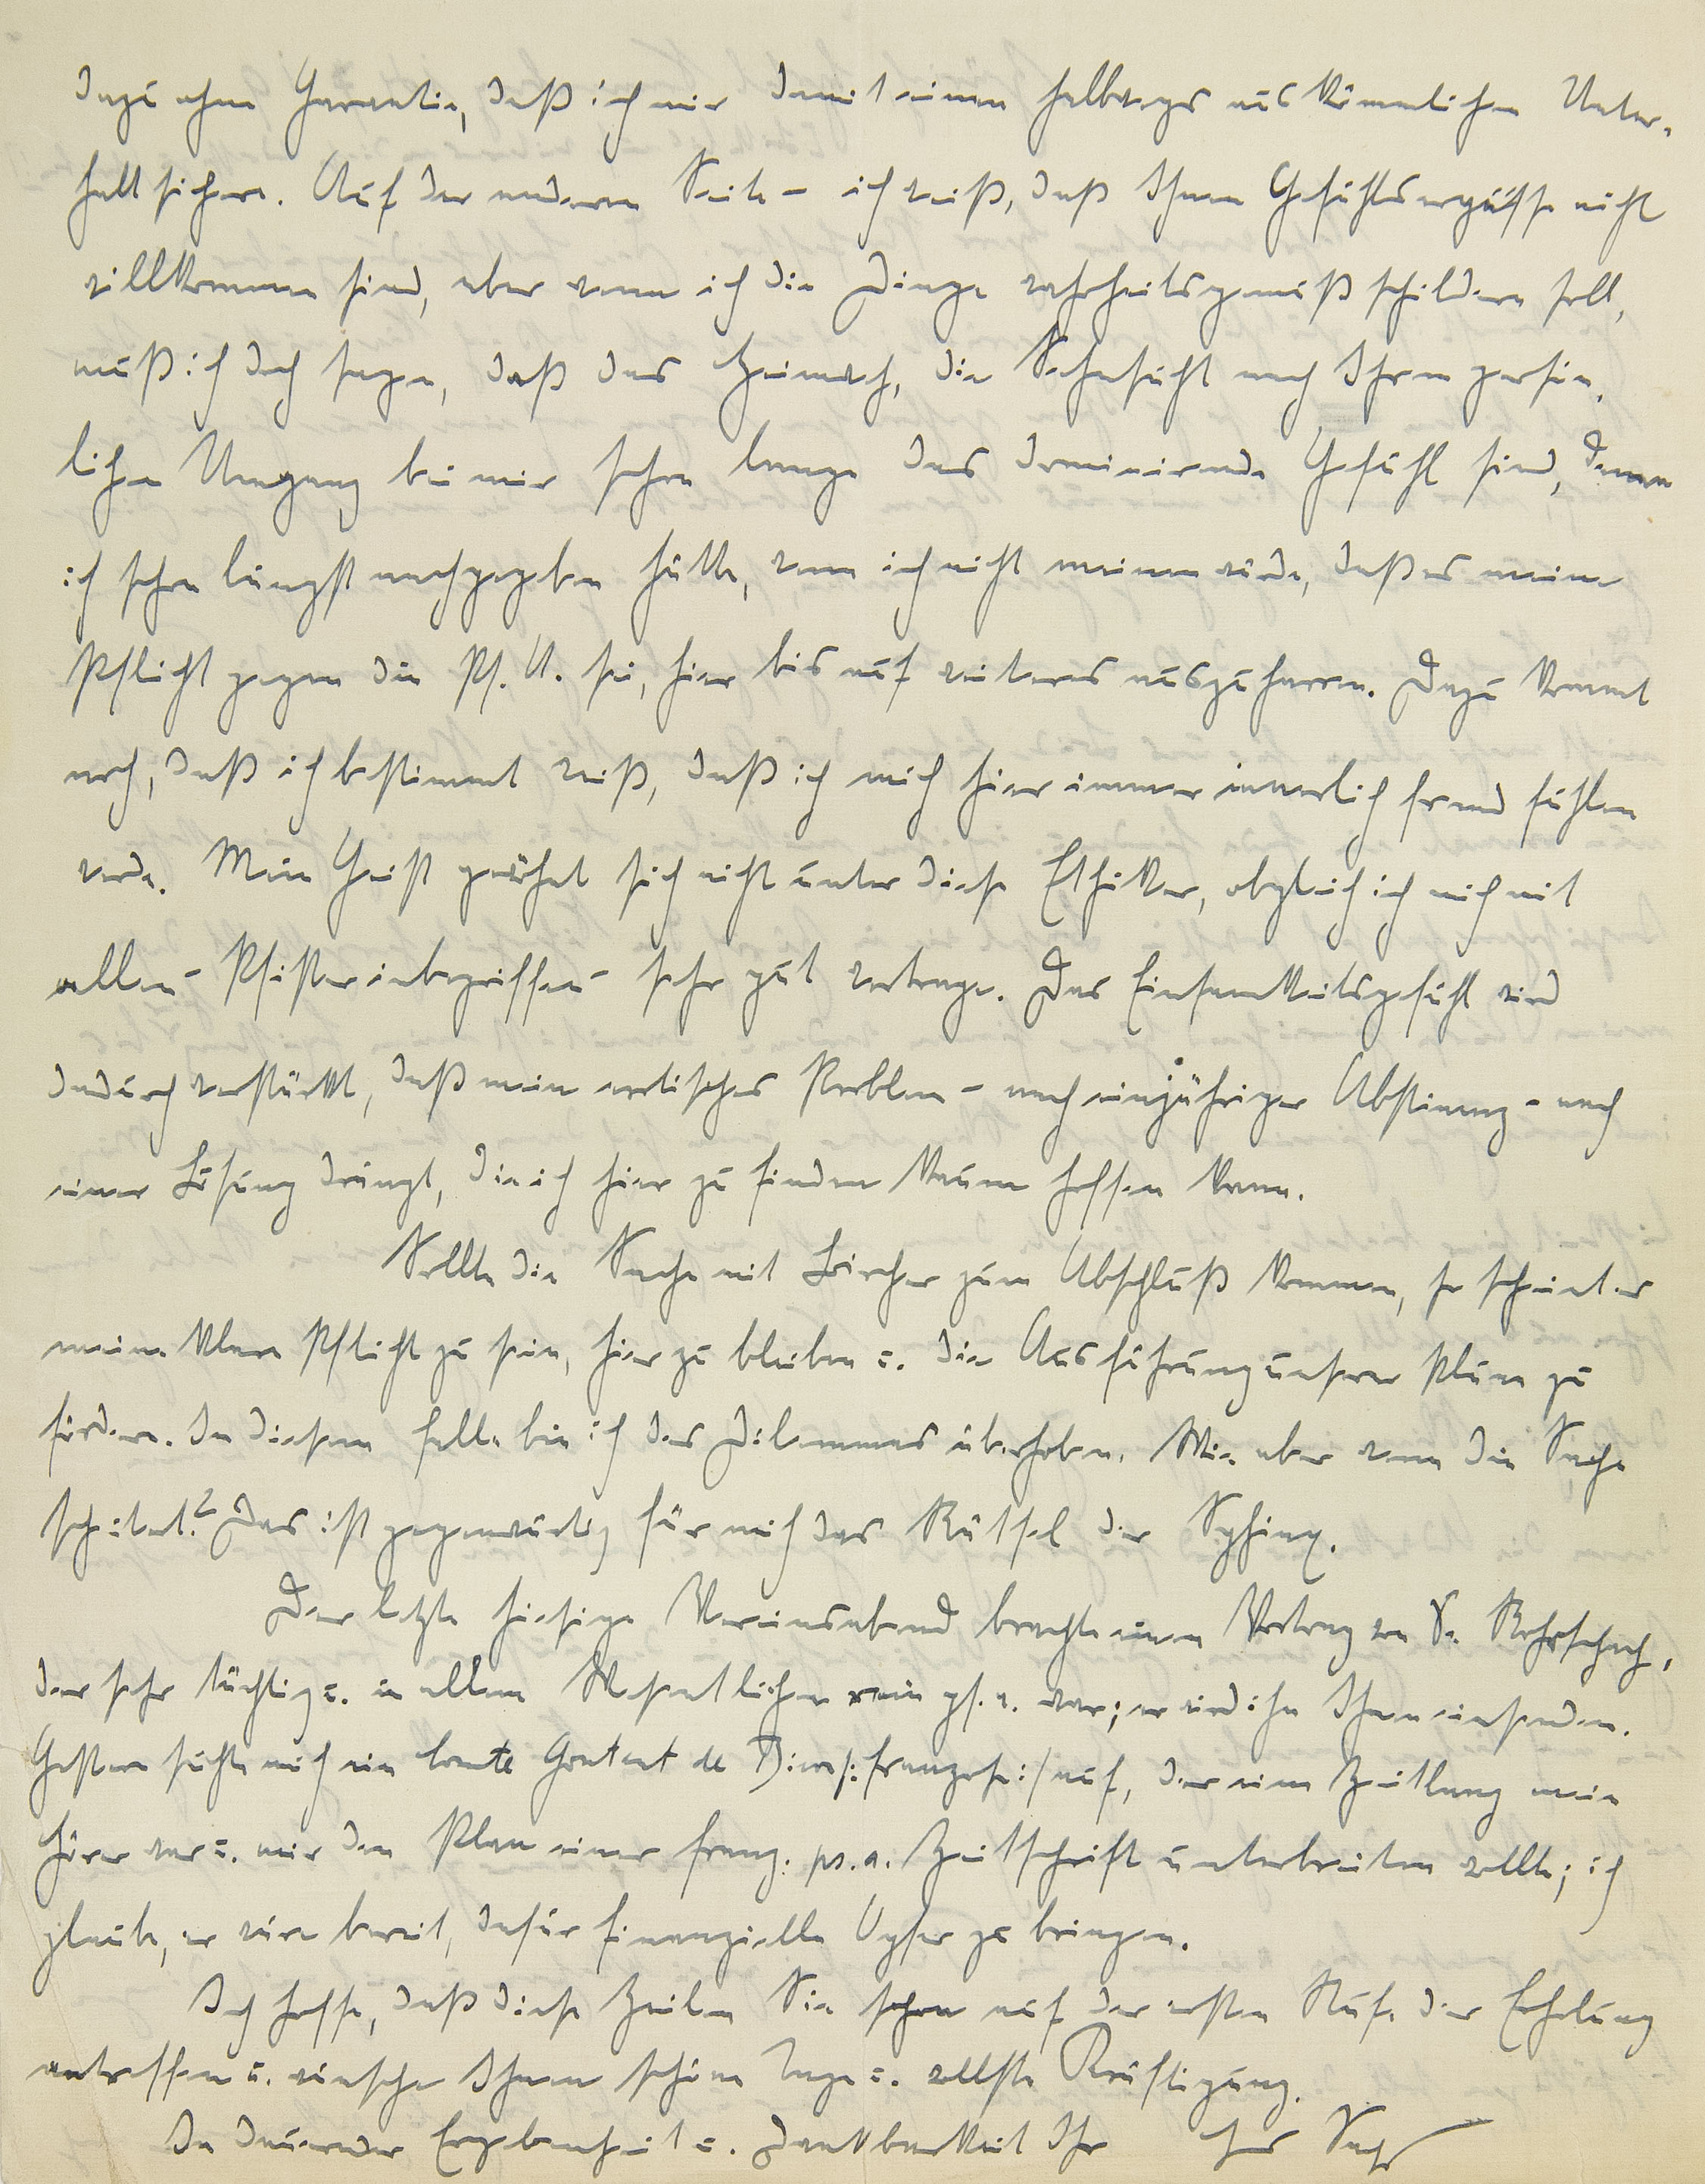 dazu ohne Garantie, daß ich mir damit einen halbwegs auskömmlichen Unter-
halt sichere. Auf der anderen Seite – ich weiß, daß Ihnen Gefühlsergüsse nicht
willkommen sind, aber wenn ich die Dinge wahrheitsgemäß schildern soll,
muß ich doch sagen, daß das Heimweh, die Sehnsucht nach Ihrem persön-
lichen Umgang bei mir schon lange das dominierende Gefühl sind, denen
ich schon längst nachgegeben hätte, wenn ich nicht meinen würde, daß es meine
Pflicht gegen die Ps. A. sei, hier bis auf weiteres auszuharren. Dazu kommt
noch, daß ich bestimmt weiß, daß ich mich hier immer innerlich fremd fühlen
werde. Mein Geist gewöhnt sich nicht unter diese Ethiker, obgleich ich mich mit
allen – Pfister inbegriffen – sehr gut vertrage. Das Einsamkeitsgefühl wird
dadurch verstärkt, daß mein erotisches Problem – nach einjähriger Abstinenz – nach
einer Lösung drängt, die ich hier zu finden kaum hoffen kann.
Sollte die Sache mit Bircher zum Abschluß kommen, so scheint es
meine klare Pflicht zu sein, hier zu bleiben u. die Ausführung unserer Pläne zu
fördern. In diesem Falle bin ich des Dilemmas überhoben. Wie aber wenn die Sache
scheitert? Das ist gegenwärtig für mich das Rätsel der Sphinx.
Der letzte hiesige Vereinsabend brachte einen Vortrag von Dr. Rohrschach,
der sehr tüchtig u. in allem Wesentlichen rein ps. a. war; er wird ihn Ihnen einsenden.
Gestern suchte mich ein Comte Gontaut de Biron /: Franzose :/ auf, der eine Zeitlang mein
Hörer war u. mir den Plan einer franz. ps. a. Zeitschrift unterbreiten wollte; ich
glaube, er wäre bereit, dafür finanzielle Opfer zu bringen.
Ich hoffe, daß diese Zeilen Sie schon auf der ersten Stufe der Erholung
antreffen u. wünsche Ihnen schöne Tage u. vollste Kräftigung.
In dauernder Ergebenheit u. Dankbarkeit Ihr Hanns Sachs